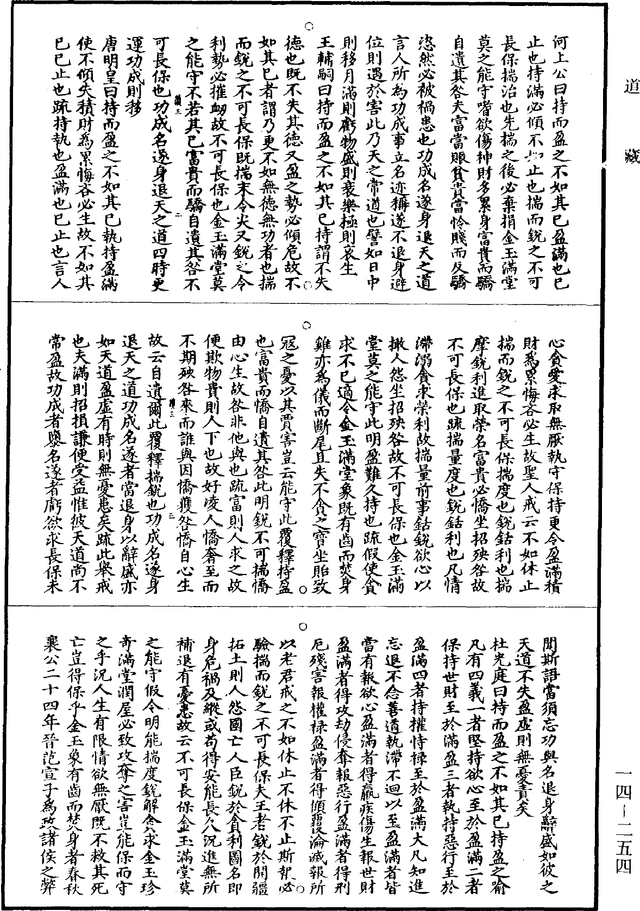 道藏
河上公曰持而盈之不如其已盈滿也已
止也持滿必傾不如止也揣而銳之不可
長保揣治也先揣之後必棄捐金玉滿堂
莫之能守嗜欲傷神財多累身富貴而驕
自遺其咎夫富當賑貧貴當憐賤而反驕
恣然必被禍患也功成名遂身退天之道
言人所為功成事立名迹稱遂不退身避
位則遇於害此乃天之常道也譬如日中
則移月滿則虧物盛則衰樂極則哀生
王輔嗣曰持而盈之不如其已持謂不失
德也既不失其德又盈之勢必傾危故不
如其已者謂乃更不如無德無功者也揣
而銳之不可長保既揣末令尖又銳之令
利勢必摧衂故不可長保也金玉滿堂莫
之能守不若其已富貴而驕自遺其咎不
可長保也功成名遂身退天之道四時更
運功成則移
唐明皇曰持而盈之不如其已執持盈滿
使不傾失積財為累悔吝必生故不如其
已已止也疏持執也盈滿也已止也言人
心貪愛求取無厭執守保持更令盈滿積
財為累悔吝必生故聖人戒云不如休止
揣而銳之不可長保揣度也銳銛利也揣
摩銳利進取榮名富貴必憍坐招殃咎故
不可長保也疏揣量度也銳銛利也凡情
滯溺貪求榮利故揣量前事銛銳欲心以
撖人怨坐招殃咎故不可長保也金玉滿
堂莫之能守此明盈難久持也疏假使貪
求不已適令金玉滿堂象既有齒而焚身
雞亦為儀而斷尾且失不貪之寶坐貽致
寇之憂以其賈害豈云能守此覆釋持盈
也富貴而憍自遺其咎此明銳不可揣憍
由心生故咎非他與也疏富則人求之故
便欺物貴則人下也故好凌人憍奢至而
不期殃咎來而誰與因憍獲咎憍自心生
故云自遺爾此覆釋揣銳也功成名遂身
退天之道功成名遂者當退身以辭盛亦
如天道盈虛有時則無憂患矣疏此舉戒
也夫滿則招損謙便受益惟彼天道尚不
常盈故功成者隳名遂者虧欲求長保未
聞斯語當須忘功與名退身辭盛如彼之
天道不失盈虛則無憂責矣
杜光庭曰持而盈之不如其已持盈之喻
凡有四義一者堅持欲心至於盈滿二者
保持世財至於滿盈三者執持惡行至於
盈滿四者持權恃祿至於盈滿大凡知進
忘退不念善道執滯不迴以至盈滿者皆
當有報欲心盈滿者得羸疾傷生報世財
盈滿者得攻劫侵奪報惡行盈滿者得刑
厄殘害報權祿盈滿者得傾覆淪滅報所
以老君戒之不如休止不休不止斯報必
驗揣而銳之不可長保夫王者銳於開疆
拓土則人怨國亡人臣銳於貪利圖名即
身危禍及縱或苟得安能長久況進無所
補退有憂恚故云不可長保金玉滿堂莫
之能守假令明能揣度銳解貪求金玉珍
奇滿堂潤屋必致攻奪之害豈能保而守
之乎況人生有限情欲無厭既不救其死
亡豈得保乎金玉象有齒而焚身者春秋
襄公二十四年晉范宣子為政諸侯之弊
一四—二五四